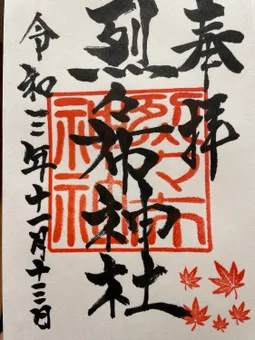 奉拝
烈々布神社
令和三年十一月十三日
烈々布
神社